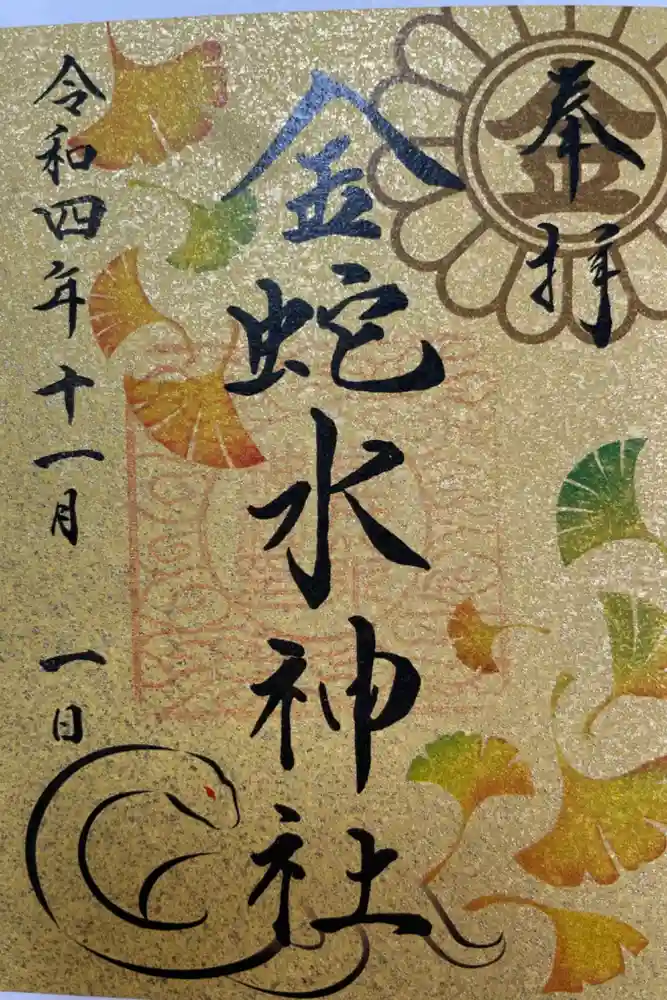 奉拝
金
金蛇水神社
令和四年十一月 一日